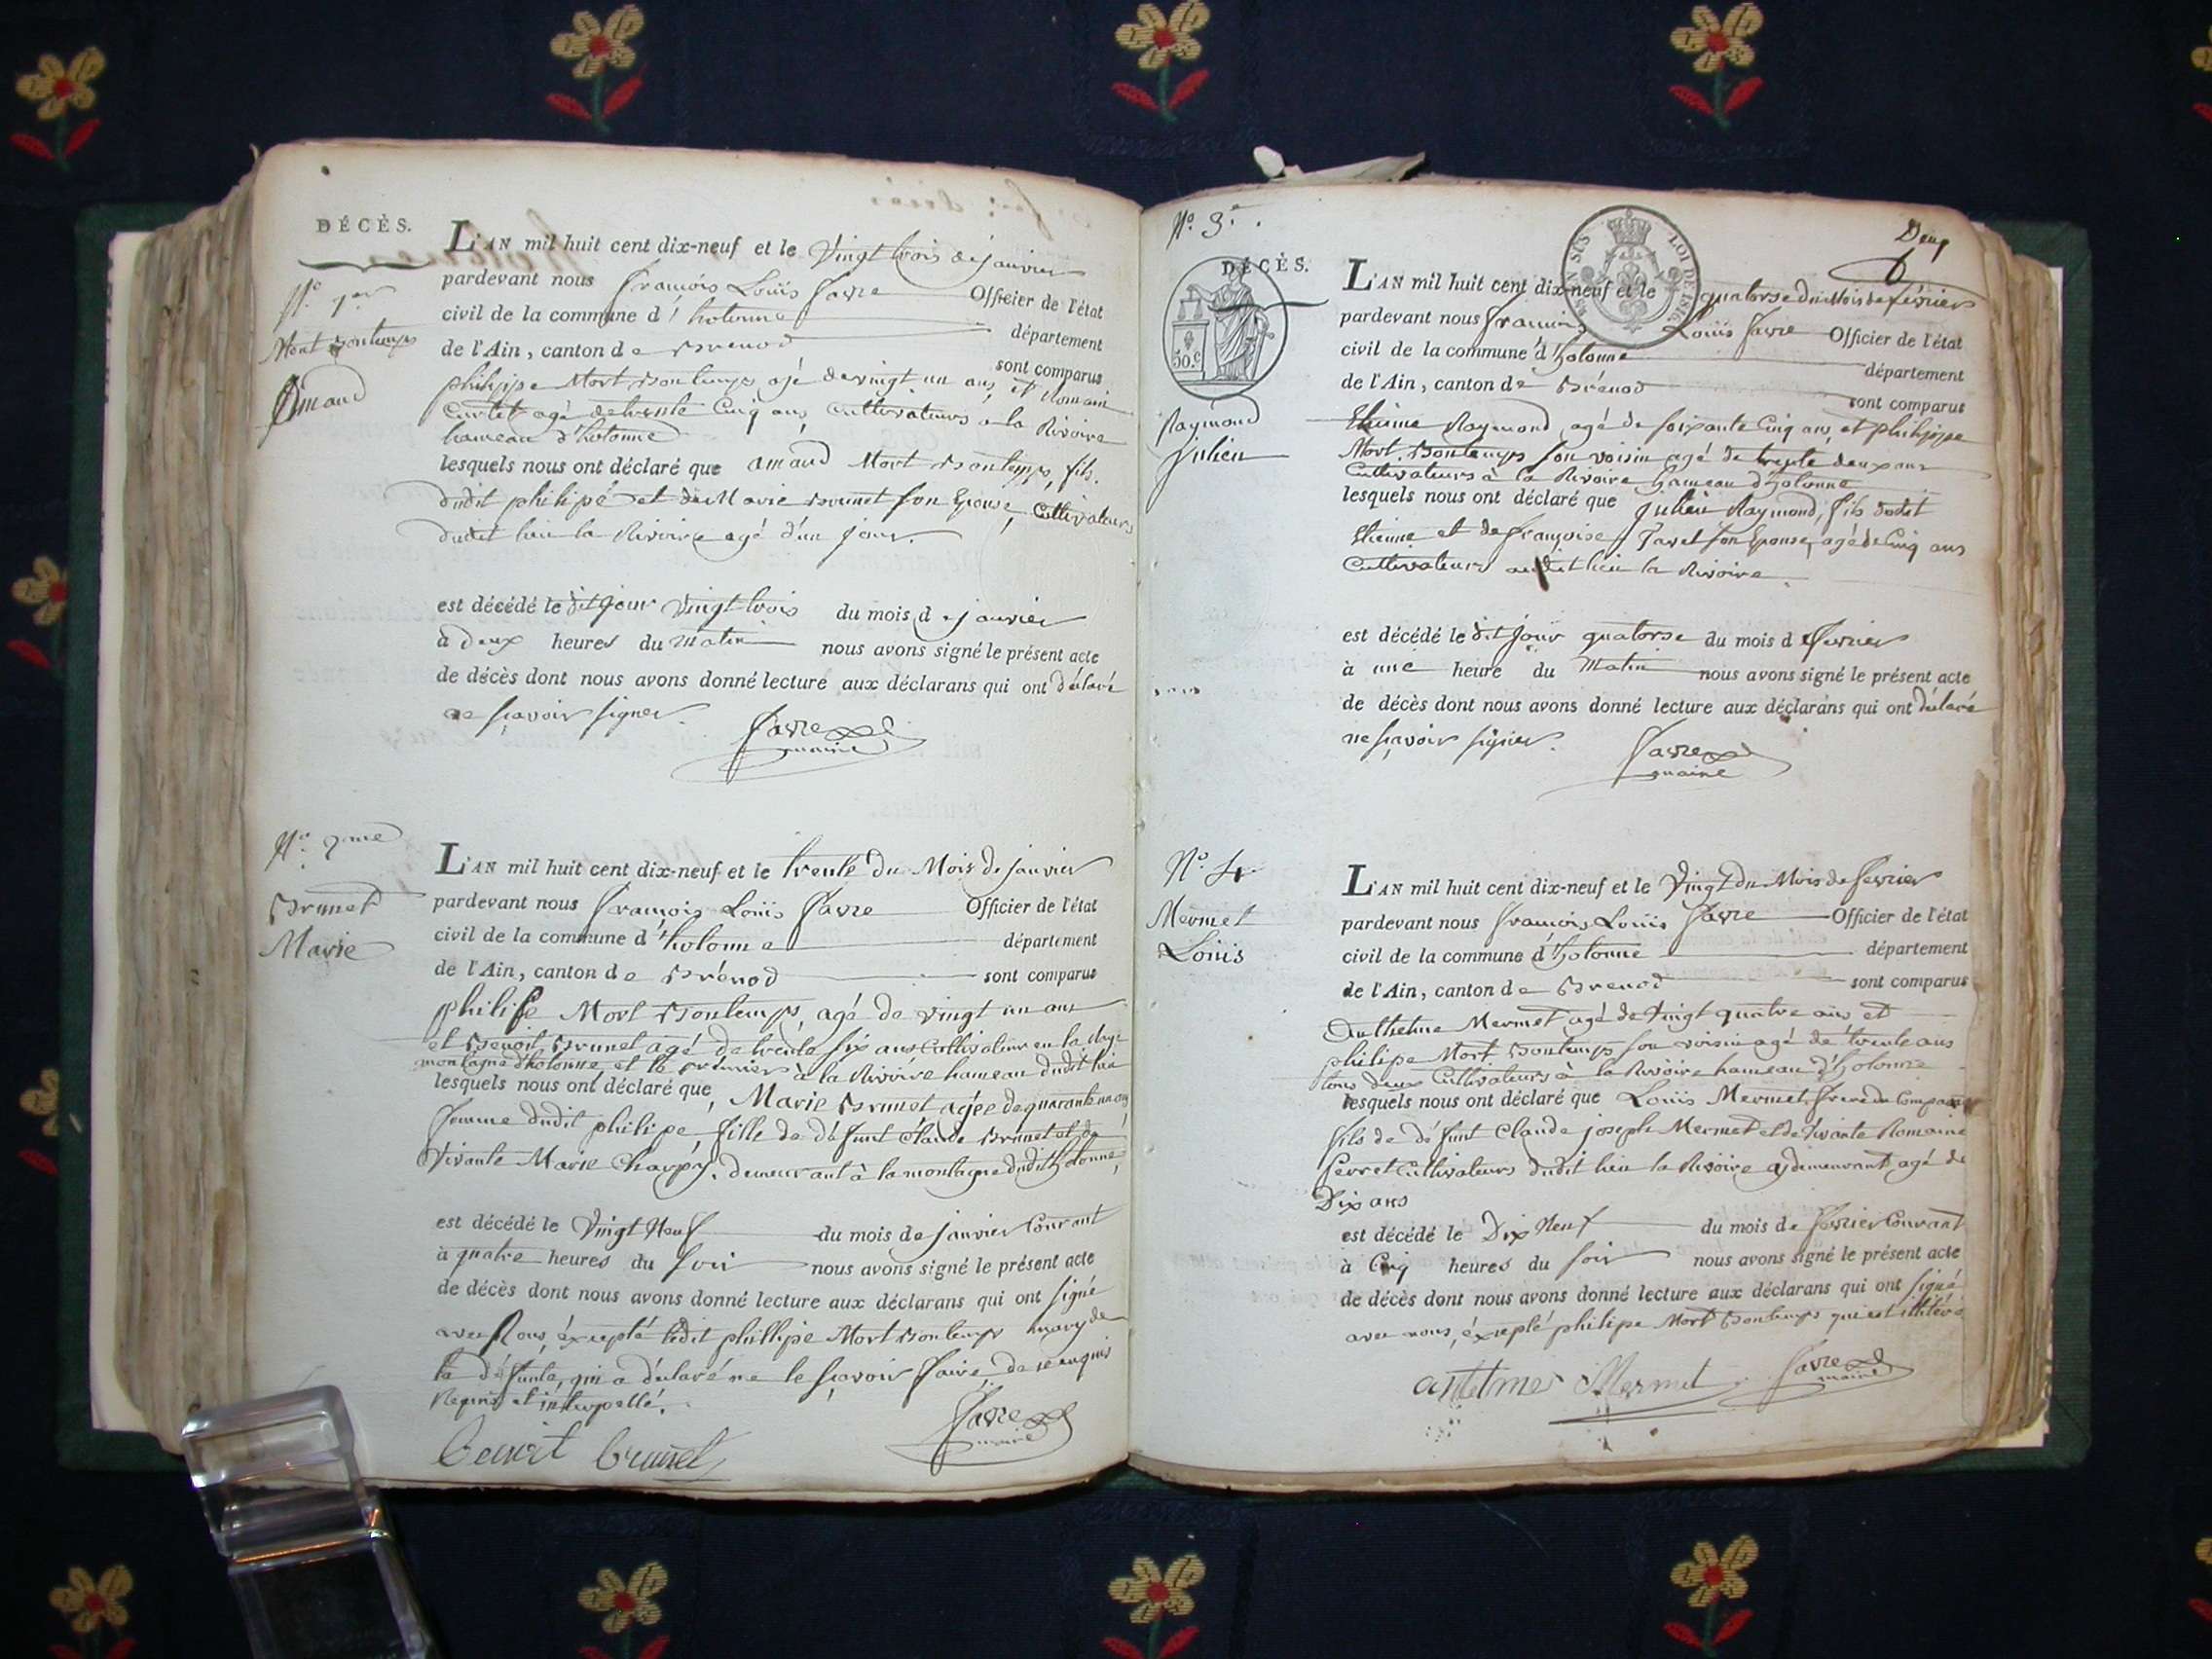 DÉCÈS.
N.º 1er
Mort Bontemps
Amand
L'AN mil huit cent dix-neuf et le Vingt trois de janvier
pardevant nous françois Louis favre Officier de l'état
civil de la commune d'hotonne département
de l'Ain, canton de Brenod sont comparus
philippe Mort Bontemps agé de vingt un ans et Romain
Curtet agé de trente Cinq ans, Cultivateurs a la Rivoire
hameau d'hotonne
lesquels nous ont déclaré que amand Mort Bontemps, fils
dudit philipe et de Marie Brunet son Epouse, Cultivateurs
dudit lieu la Rivoire agé d'un jour.
est décédé le dit jour Vingt trois du mois de janvier
à deux heures du matin nous avons signé le présent acte
de décès dont nous avons donné lecture aux déclarans qui ont déclaré
ne sçavoir signer.
favre
maire
N.º 2me
Brunet
Marie
L'AN mil huit cent dix-neuf et le trente du Mois de janvier
pardevant nous françois Louis favre Officier de l'état
civil de la commune d'hotonne département
de l'Ain, canton de Brénod sont comparus
philipe Mort Bontemps, agé de vingt un ans
et Benoit Brunet agé de trente six ans Cultivateur en la
montagne d'hotonne, et le premier à la Rivoire hameau dudit lieu
lesquels nous ont déclaré que Marie Brunet agée de quarante un ans
femme dudit philipe, fille de défunt Claude Brunet et de
Vivante Marie Charpy, demeurant à la montagne dudit hotonne,
est décédé le Vingt Neuf du mois de janvier Courant
à quatre heures du soir nous avons signé le présent acte
de décès dont nous avons donné lecture aux déclarans qui ont signé
avec Nous, éxcepté ledit phillipe Mort Bontemps mary de
la défunte, qui a déclaré ne le sçavoir faire, de ce enquis
Requis et interpellé.
favre
maire
benoit brunet
N.º 3.e
Deux
DÉCÈS.
50.c
LOI DE 1816
EN SUS
Raymond
Julien
L'AN mil huit cent dix-neuf et le quatorse du Mois de fevrier
pardevant nous françois Louis favre Officier de l'état
civil de la commune d'hotonne département
de l'Ain, canton de Brénod sont comparus
Etienne Raymond, agé de soixante Cinq ans, et philippe
Mort Bontemps son voisin agé de trente deux ans
Cultivateurs à la Rivoire hameau d'hotonne
lesquels nous ont déclaré que julien Raymond, fils dudit
Etienne et de françoise Tavel son Epouse, agé de Cinq ans
Cultivateurs audit lieu la Rivoire.
est décédé le dit jour quatorse du mois de fevrier
à une heure du matin nous avons signé le présent acte
de décès dont nous avons donné lecture aux déclarans qui ont déclaré
ne sçavoir signer.
favre
maire
N.º 4
Mermet
Louis
L'AN mil huit cent dix-neuf et le Vingt du Mois de fevrier
pardevant nous françois Louis favre Officier de l'état
civil de la commune d'hotonne département
de l'Ain, canton de Brenod sont comparus
Anthelme Mermet agé de vingt quatre ans et
philipe Mort Bontemps son voisin agé de trente ans
tous deux Cultivateurs à la Rivoire hameau d'hotonne
lesquels nous ont déclaré que Louis Mermet, frere du Comparant
fils de défunt Claude joseph Mermet et de Vivante Romaine
Cultivateurs dudit lieu la Rivoire y demeurant, agé de
Dix ans
est décédé le Dix Neuf du mois de fevrier Courant
à Cinq heures du soir nous avons signé le présent acte
de décès dont nous avons donné lecture aux déclarans qui ont signé
avec nous, éxcepté philipe Mort Bontemps qui est illitéré
antelme Mermet
favre
maire